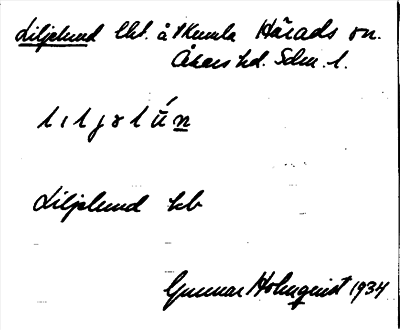 Liljelund lht. å Kumla Härads sn.
Åkers hd. Sdm. l.
Liljelund hb
Gunnar Holmquist 1934